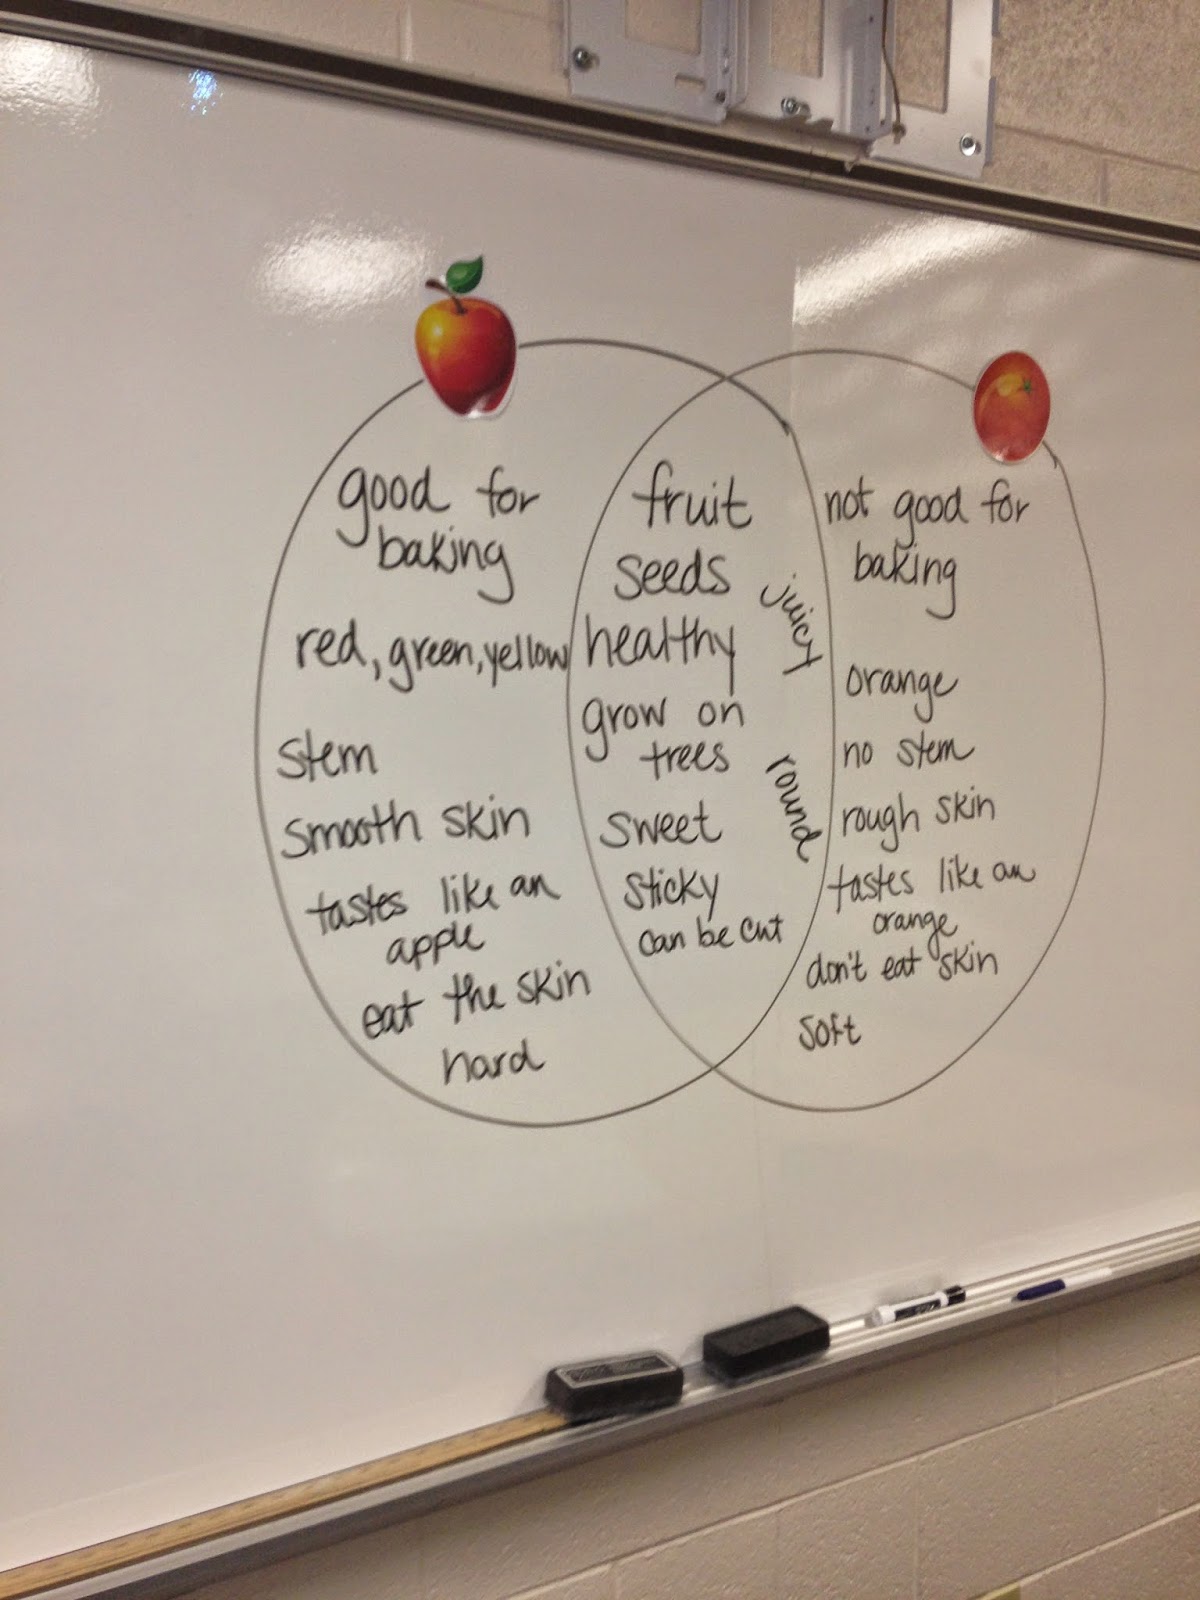 good for
baking
red, green, yellow
stem
smooth skin
tastes like an
apple
eat the skin
hard
fruit
seeds
healthy
grow on
trees
sweet
sticky
can be cut
juicy
round
not good for
baking
orange
no stem
rough skin
tastes like an
orange
don't eat skin
soft